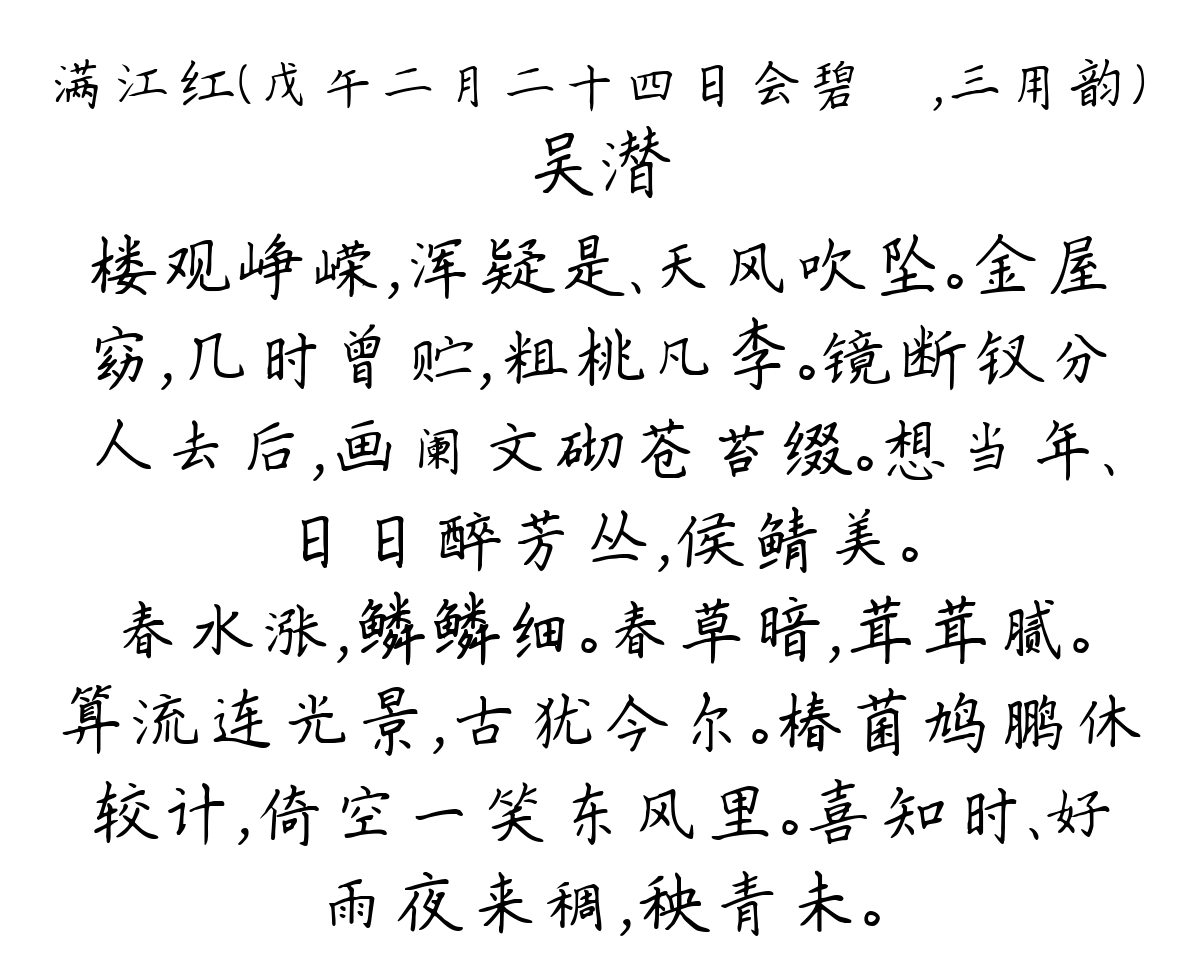 满江红(戊午二月二十四日会碧 ,三用韵)
吴潜
楼观峥嵘,浑疑是、天风吹坠。金屋
窈,几时曾贮,粗桃凡李。镜断钗分
人去后,画阑文砌苍苔缀。想当年、
日日醉芳丛,侯鲭美。
春水涨,鳞鳞细。春草暗,茸茸腻。
算流连光景,古犹今尔。椿菌鸠鹏休
较计,倚空一笑东风里。喜知时、好
雨夜来稠,秧青未。